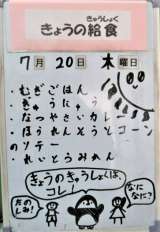 きゅうしょく
きょうの給食
7月20日 木曜日
・むぎごはん
・ぎゅうにゅう
・なつやさいカレー
・ほうれんそうとコーン
のソテー
・れいとうみかん
きょうのきゅうしょくは、
コレ!
たのしみ!
なになに?